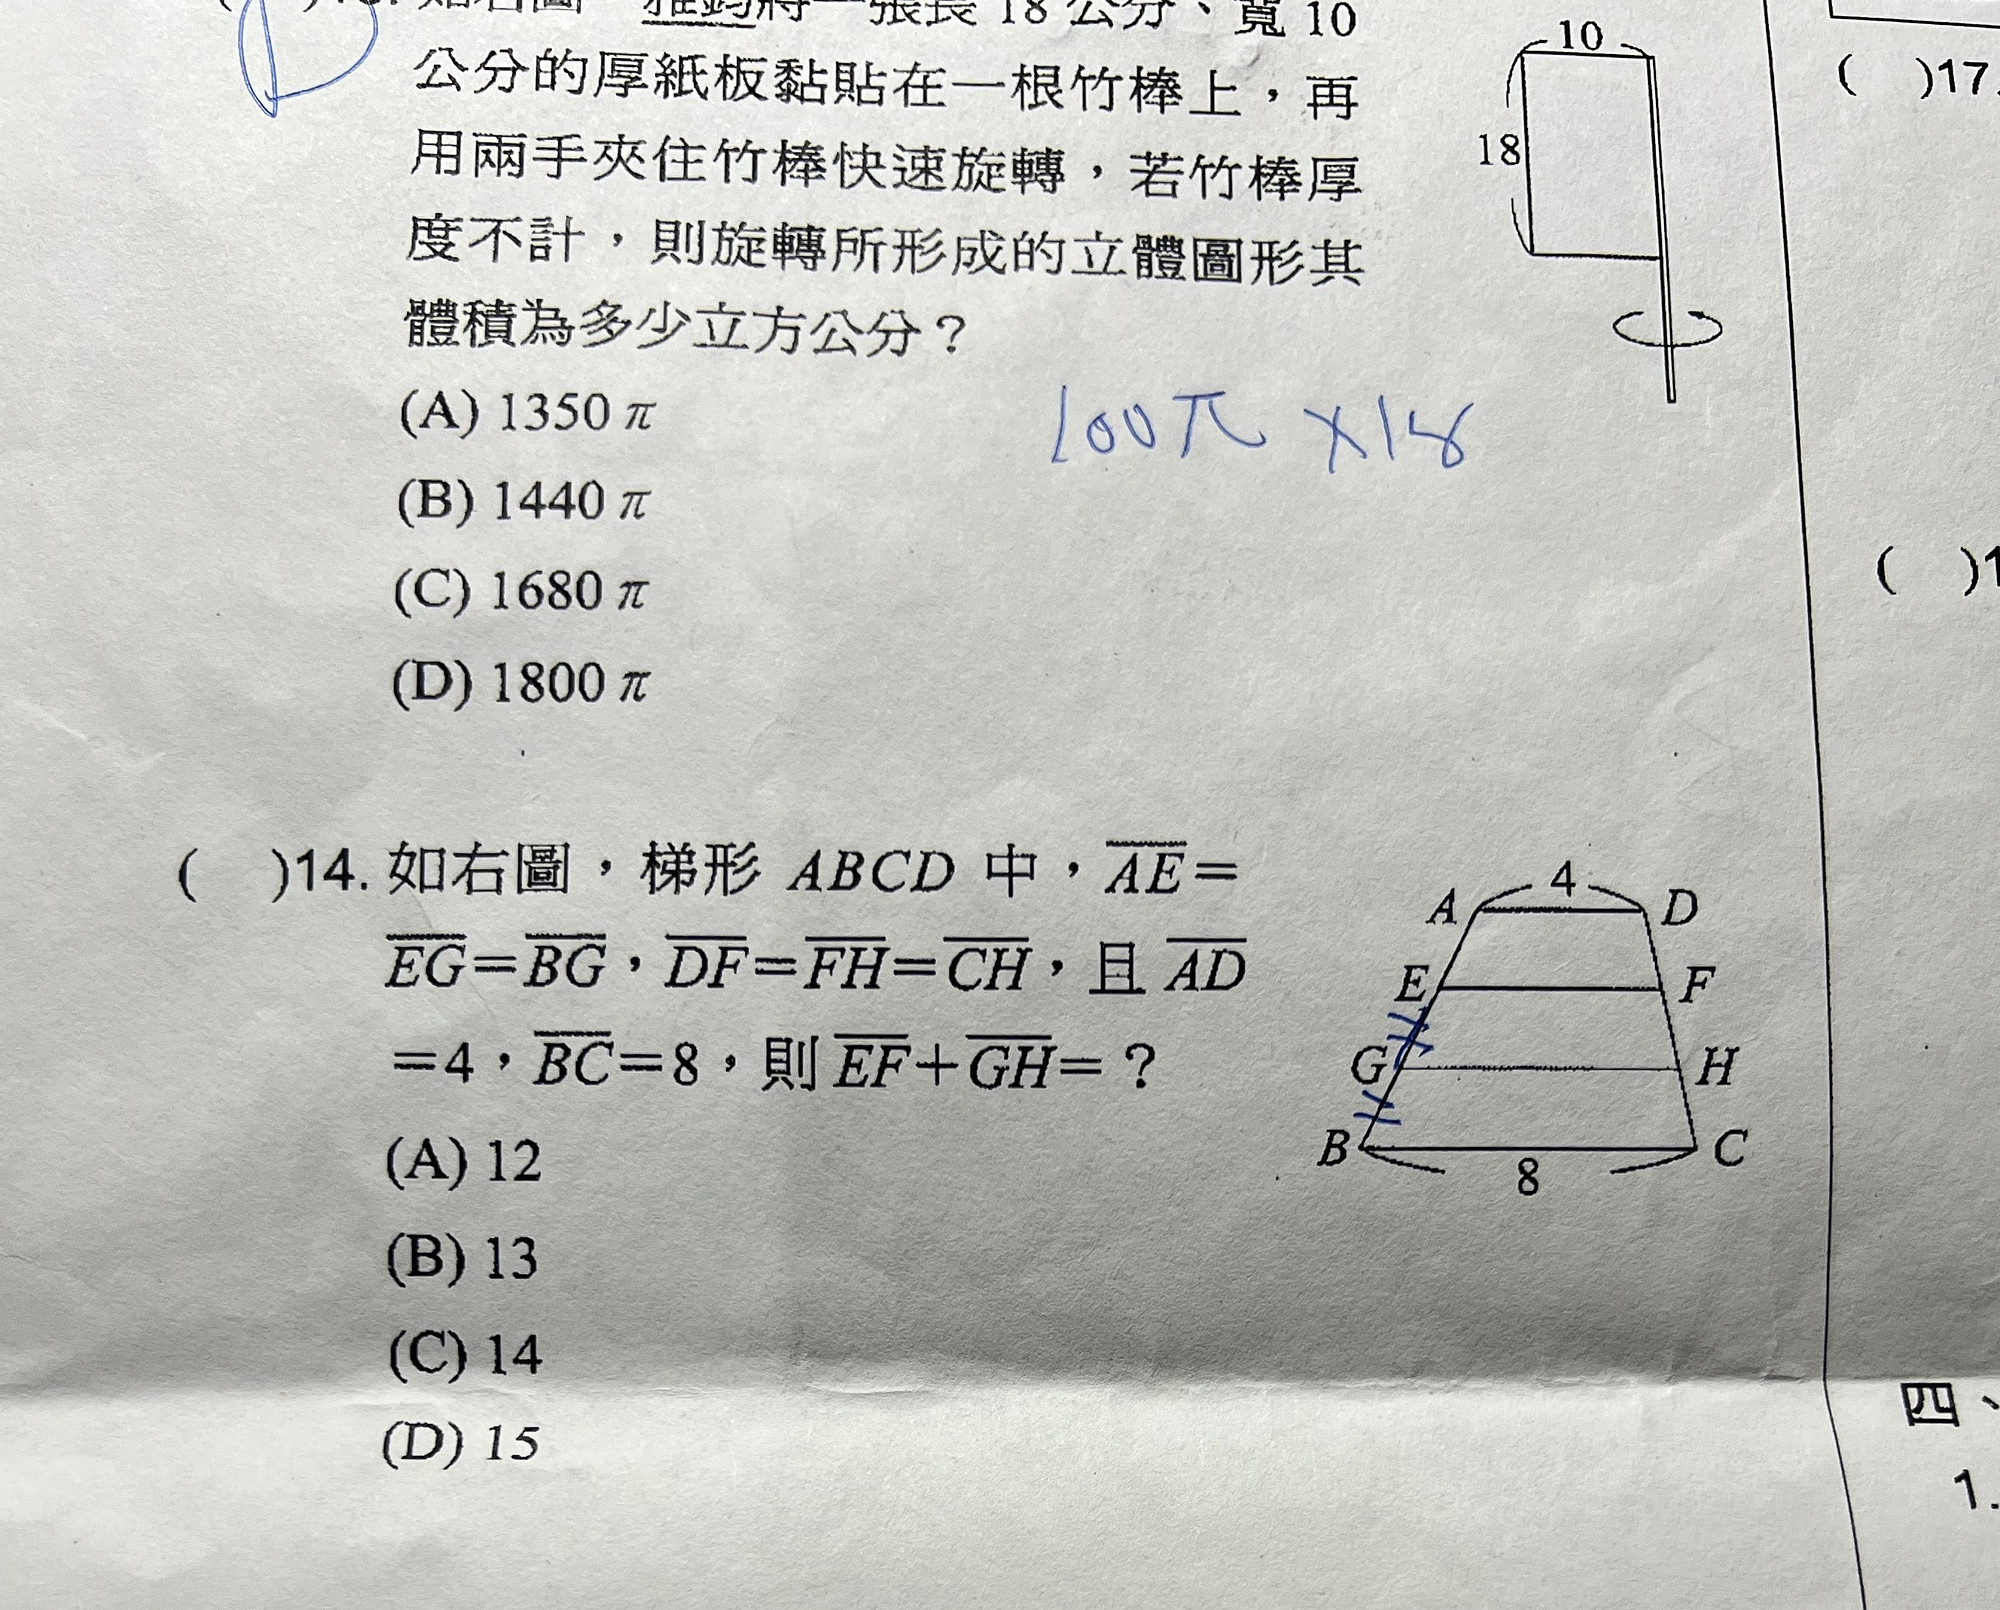 張長 18 公分、寬 10
公分的厚紙板黏貼在一根竹棒上，再
用兩手夾住竹棒快速旋轉，若竹棒厚
度不計，則旋轉所形成的立體圖形其
體積為多少立方公分？
(A) 1350 π
(B) 1440 π
(C) 1680 π
(D) 1800 π
10
18
100π ×18
( )14. 如右圖，梯形 ABCD 中，AE=
EG=BG，DF=FH=CH，且 AD
=4，BC=8，則 EF+GH=？
(A) 12
(B) 13
(C) 14
(D) 15
4
A D
E F
G H
B C
8
( )17.
( )1
四、
1.